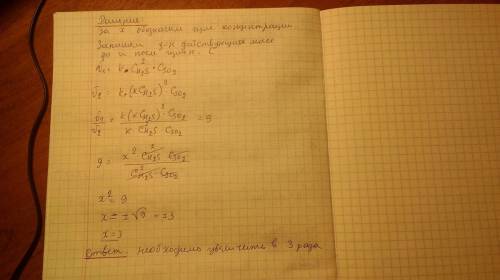 Решение:
За x обозначим изм концентрации
Запишем з-н действующих масс
до и после
v₁ = k · C²H₂S · CSO₂
v₂ = k · (x CH₂S)² · CSO₂
v₂/v₁ = k (x CH₂S)² · CSO₂ / k C²H₂S CSO₂ = 9
9 = x² C²H₂S CSO₂ / C²H₂S · CSO₂
x² = 9
x = ±√9 = ±3
x = 3
Ответ: необходимо увеличить в 3 раза